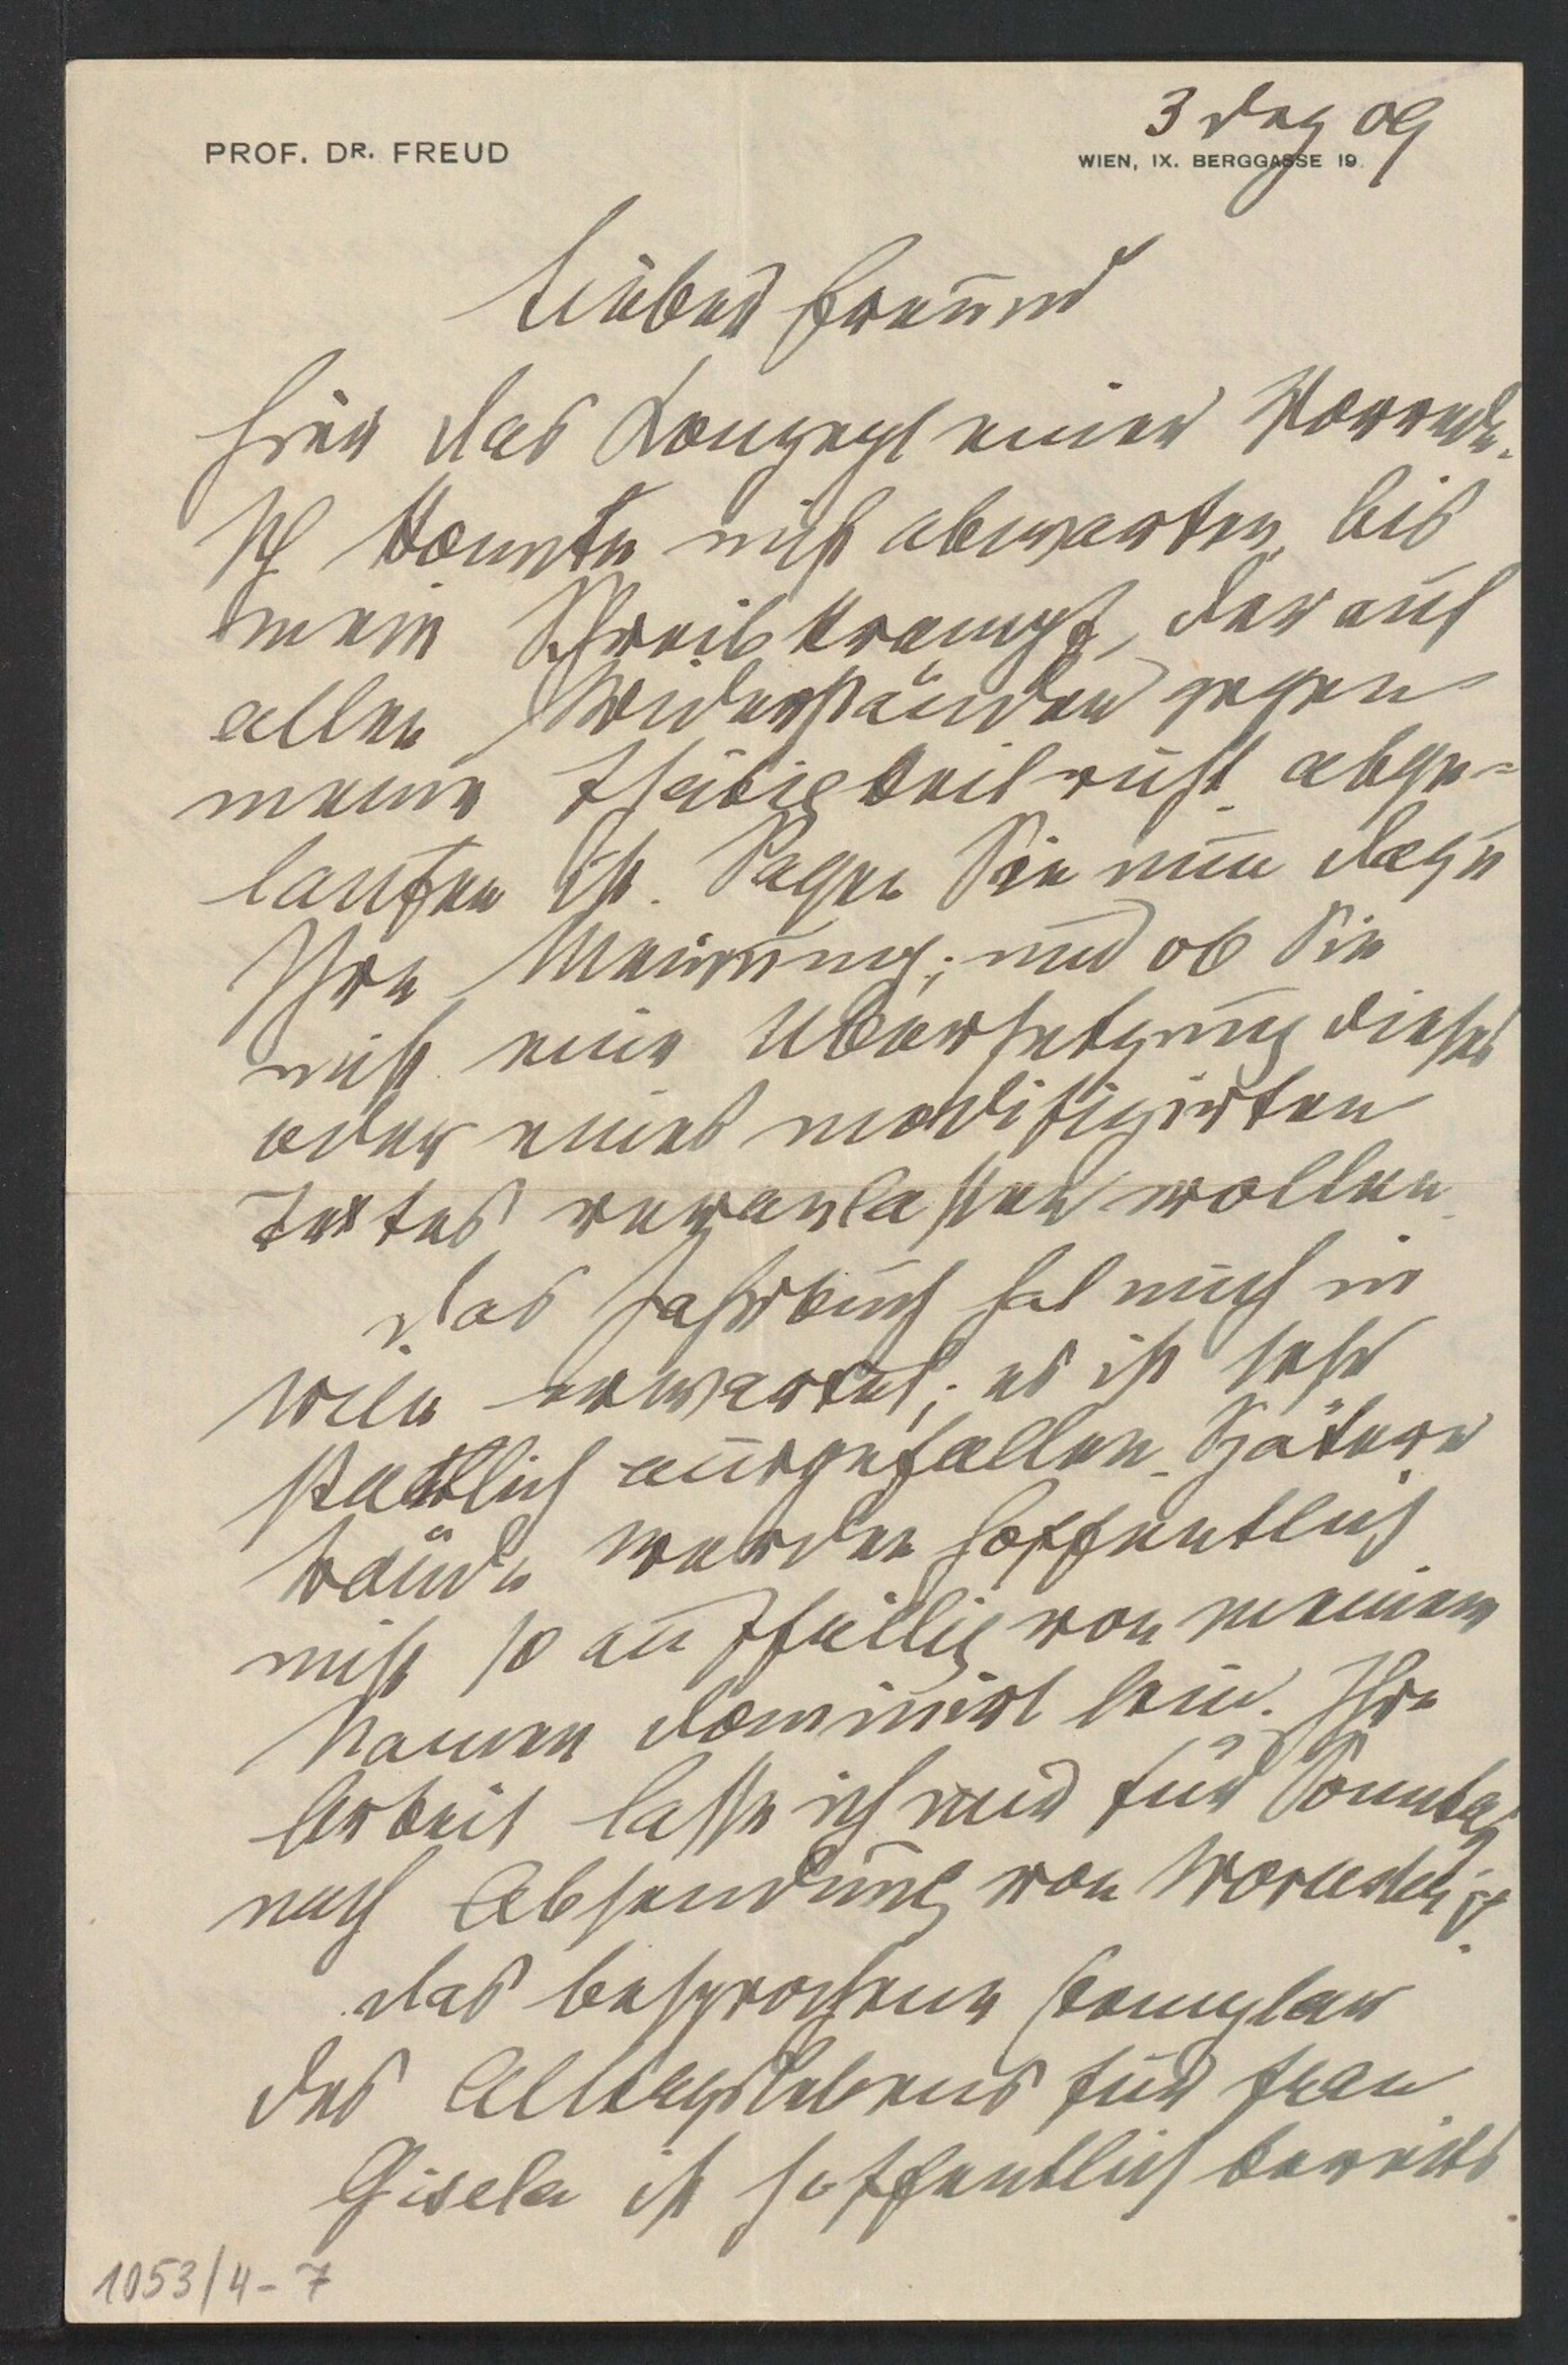 3 Dez 09
PROF. DR. FREUD
WIEN, IX. BERGGASSE 19.
Lieber Freund
Hier das Konzept einer Vorrede.
Ich konnte nicht abwarten, bis
mein Schreibkrampf, der auf
allen Widerständen gegen
meine Thätigkeit ruht, abge-
laufen ist. Sagen Sie nun dazu
Ihre Meinung; und ob Sie
nicht eine Übersetzung dieses
oder eines modifizirten
Textes veranlassen wollen.
Das Jahrbuch hat mich in
Wien erwartet; es ist sehr
stattlich ausgefallen. Spätere
Bände werden hoffentlich
nicht so auffällig von meinem
Namen dominirt sein. Ihre
Arbeit lasse ich mir für Sonntag
nach Absendung von Worcester
Das besprochene Exemplar
des Alltagslebens für Frau
Gisela ist hoffentlich bereits
1053/4-7